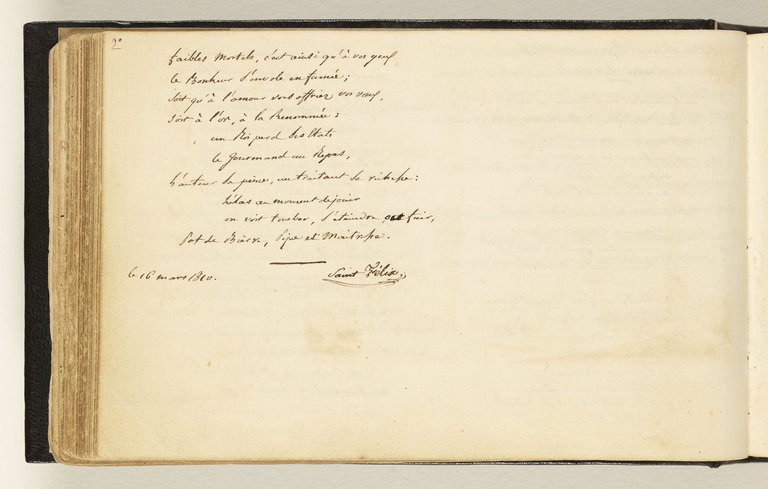 2°
faibles Mortels, c'est ainsi qu'à vos yeux
le Bonheur s'envole en fumée;
soit qu'à l'amour vous offriez vos vœux,
soit à l'or, à la Renommée:
un Roi perd ses Etats
le Gourmand un Repas,
l'auteur sa pièce, un traitant sa richesse:
hélas au moment de jouir
on voit tomber, s'éteindre et fuir,
Pot de Bierre, Pipe et Maitresse.
le 16 mars 1810.
Saint Félix